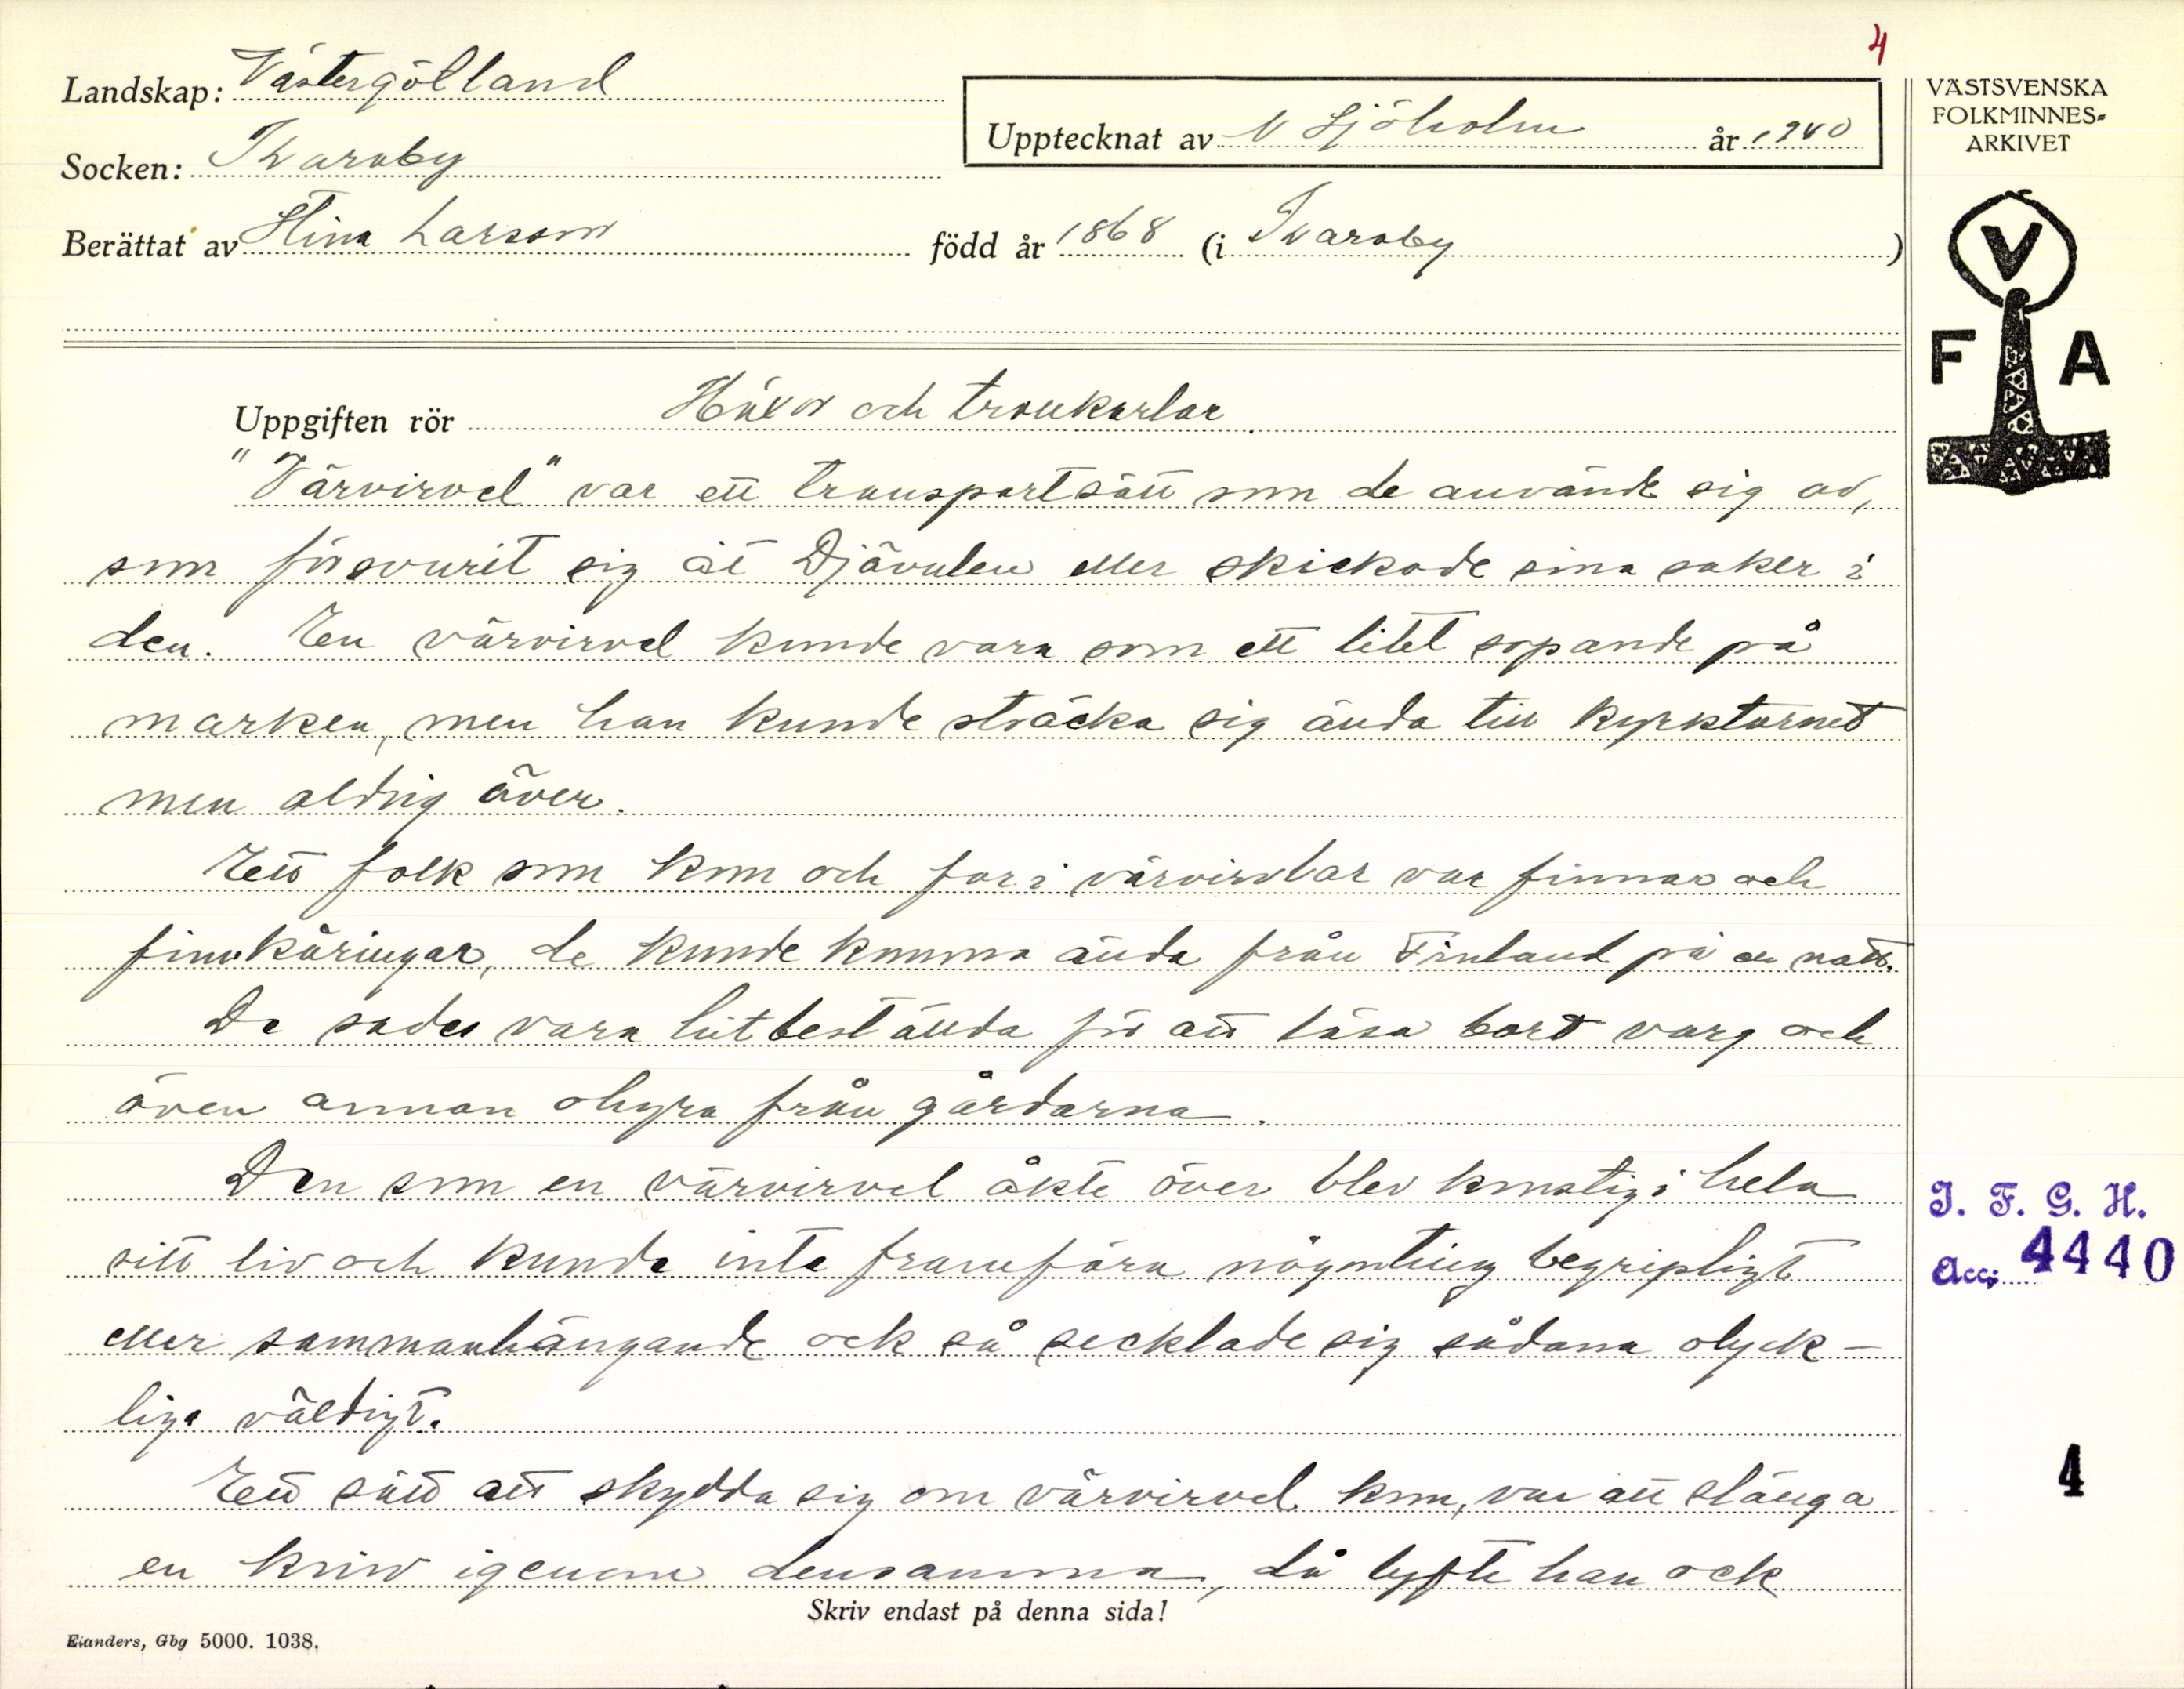 4
Landskap: Västergötland
Upptecknat av N Sjöholm år 1940
VÄSTSVENSKA
FOLKMINNES-
ARKIVET
Socken: Tvaraby
Berättat av Stina Larsson född år 1868 (i Tvaraby)
V
F A
Uppgiften rör Häxor och trollkarlar.
"Värvirvel" var ett transportsätt som de använde sig av,
som försvurit sig åt Djävulen eller skickade sina saker i
den. En värvirvel kunde vara som ett litet sopande på
marken, men han kunde sträcka sig ända till kyrktornet
men aldrig över.
Ett folk som kom och for i värvirvlar var finnar och
finnkäringar, de kunde komma ända från Finland på en natt.
De sades vara hitbeställda för att läsa bort varg och
även annan ohyra från gårdarna.
Den som en värvirvel åkte över blev konstig i hela
sitt liv och kunde inte framföra någonting begripligt
eller sammanhängande ock så secklade sig sådana olyck-
liga väldigt.
Ett sätt att skydda sig om värvirvel kom, var att slänga
en kniv igenom densamma, då lyfte han ock
I. F. G. H.
Acc. 4440
4
Skriv endast på denna sida!
Elanders, Gbg 5000. 1038.